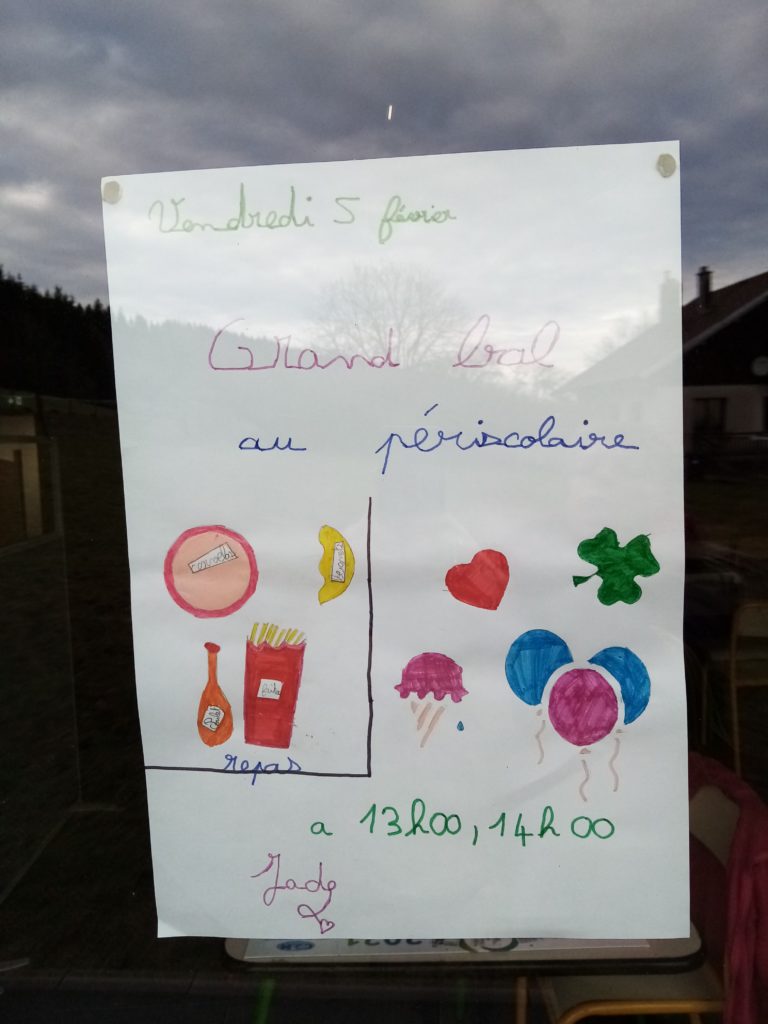 Vendredi 5 février
Grand bal
au périscolaire
frites
repas
a 13h00, 14h00
Jade
2021